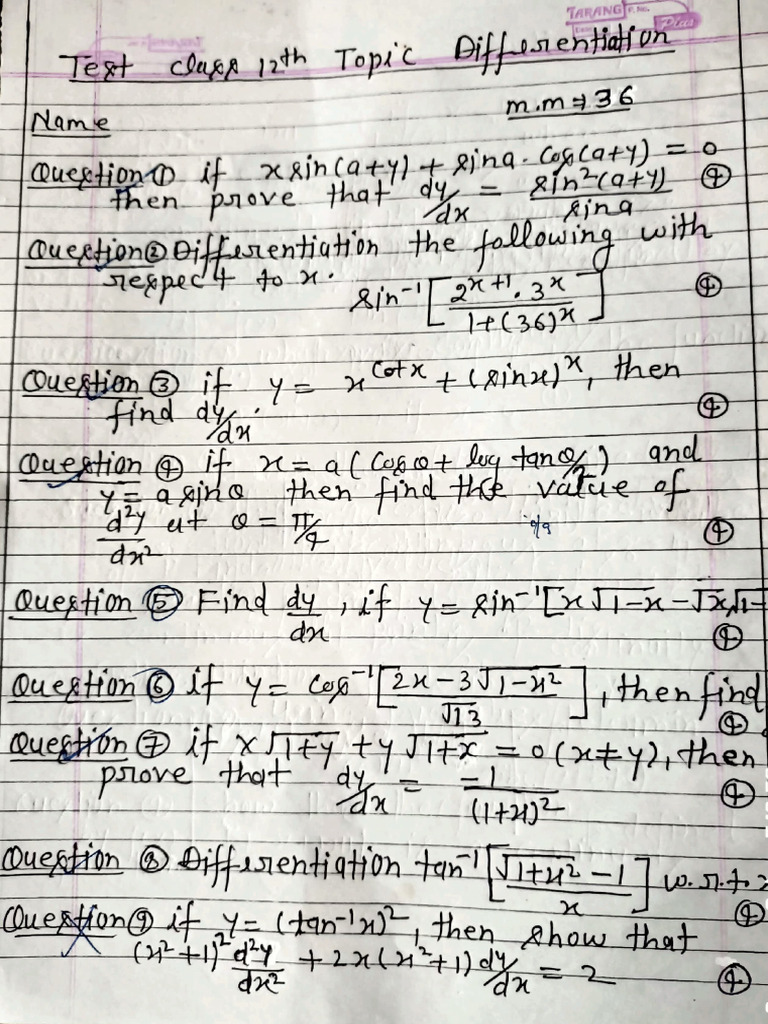 TARANG
Plus
Test class 12th Topic Differentiation
m.m = 36
Name
Question ① if x sin(a+y) + sina. cos(a+y) = 0
then prove that dy/dx = sin²(a+y)/sina ④
Question ② Differentiation the following with
respect to x.
sin⁻¹[2^(x+1) . 3^x / 1+(36)^x] ④
Question ③ if y = x^cotx + (sinx)^x, then
find dy/dx. ④
Question ④ if x = a(cosθ + log tanθ/2) and
y = a sinθ then find the value of
d²y/dx² at θ = π/4 ④
Question ⑤ Find dy/dx, if y = sin⁻¹[x√1-x - √x√1-
④
Question ⑥ if y = cos⁻¹[2x - 3√1-x² / √13], then find
④
Question ⑦ if x√1+y + y√1+x = 0 (x≠y), then
prove that dy/dx = -1/(1+x)² ④
Question ⑧ Differentiation tan⁻¹[√1+x² - 1 / x] w.r.to
④
Question ⑨ if y = (tan⁻¹x)², then show that
(x²+1)² d²y/dx² + 2x(x²+1) dy/dx = 2 ④